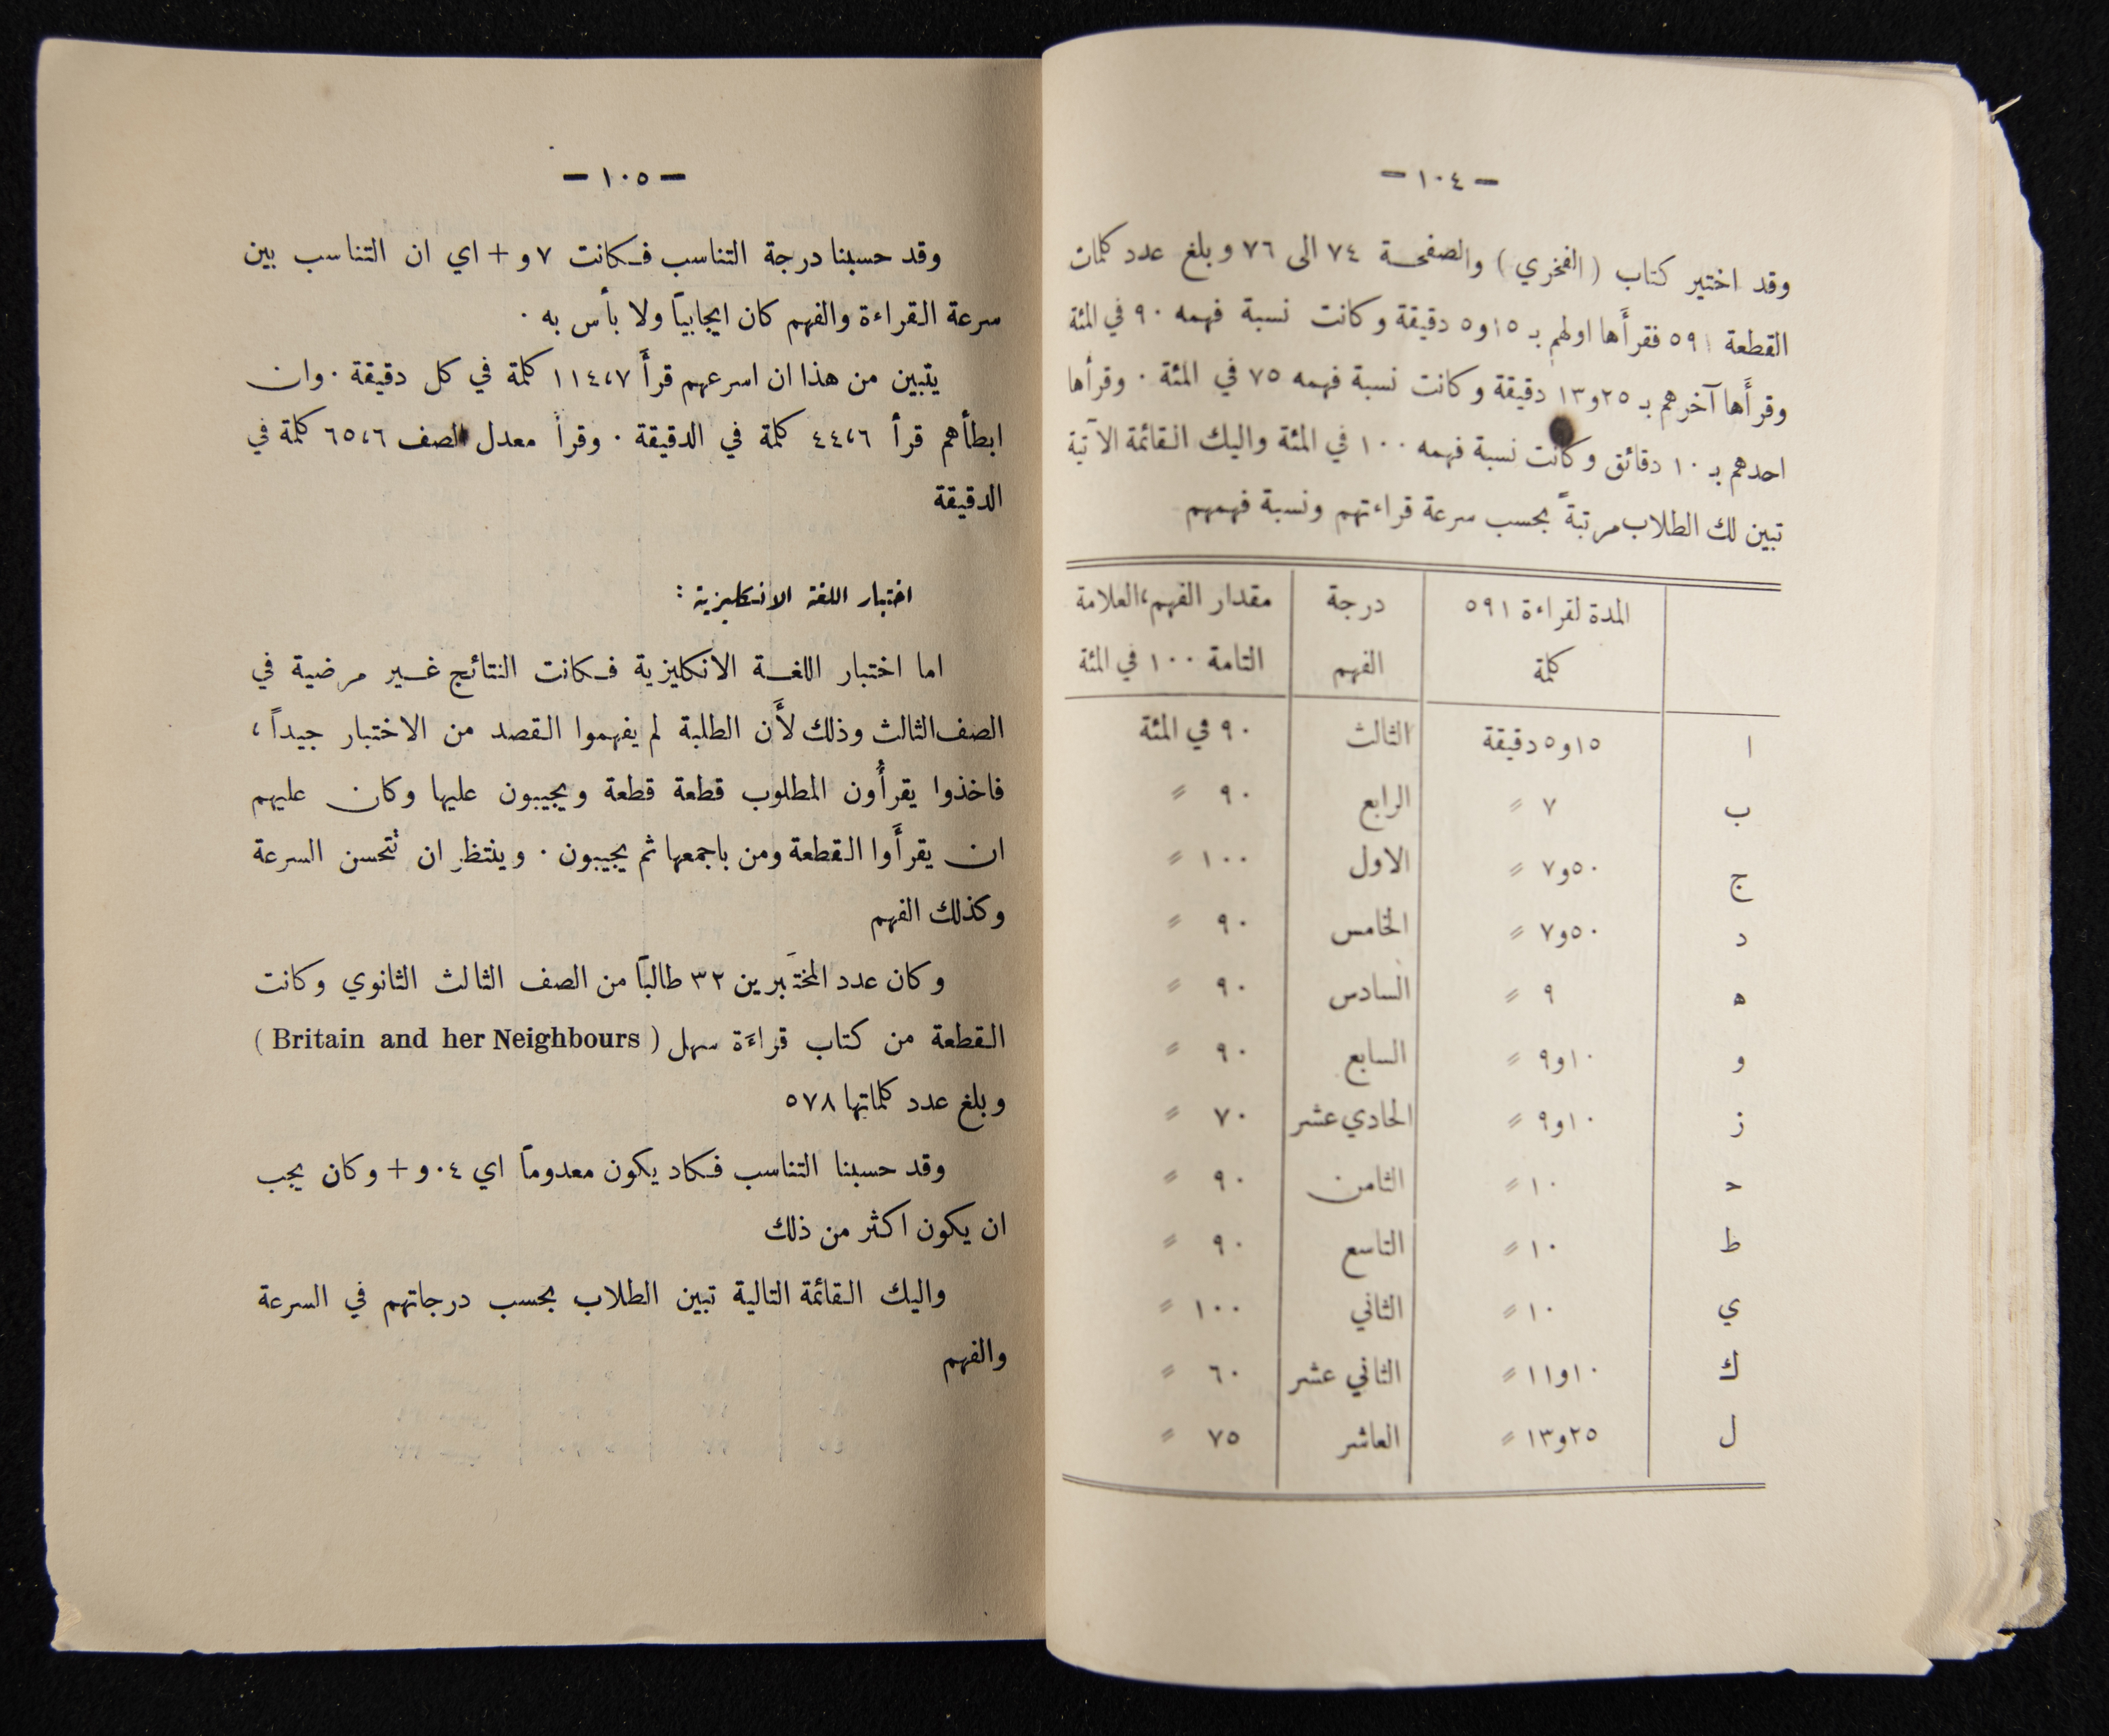 — ١٠٤ —
وقد اختير كتاب (الفخري) والصفحة ٧٤ الى ٧٦ وبلغ عدد كلمات
القطعة ٥٩١ فقرأَها اولهم بـ ١٥و٥ دقيقة وكانت نسبة فهمه ٩٠ في المئة
وقرأَها آخرهم بـ ٢٥و١٣ دقيقة وكانت نسبة فهمه ٧٥ في المئة ٠ وقرأها
احدهم بـ ١٠ دقائق وكانت نسبة فهمه ١٠٠ في المئة واليك القائمة الآتية
تبين لك الطلاب مرتبةً بحسب سرعة قراءتهم ونسبة فهمهم
المدة لقراءة ٥٩١ درجة مقدار الفهم،العلامة
كلمة الفهم التامة ١٠٠ في المئة
ا ١٥و٥ دقيقة الثالث ٩٠ في المئة
ب ٧ ״ الرابع ٩٠ ״
ج ٥٠و٧ ״ الاول ١٠٠ ״
د ٥٠و٧ ״ الخامس ٩٠ ״
ه ٩ ״ السادس ٩٠ ״
و ١٠و٩ ״ السابع ٩٠ ״
ز ١٠و٩ ״ الحادي عشر ٧٠ ״
ح ١٠ ״ الثامن ٩٠ ״
ط ١٠ ״ التاسع ٩٠ ״
ي ١٠ ״ الثاني ١٠٠ ״
ك ١٠و١١ ״ الثاني عشر ٦٠ ״
ل ٢٥و١٣ ״ العاشر ٧٥ ״
— ١٠٥ —
وقد حسبنا درجة التناسب فكانت ٧و + اي ان التناسب بين
سرعة القراءة والفهم كان ايجابياً ولا بأس به ٠
يتبين من هذا ان اسرعهم قرأَ ١١٤،٧ كلمة في كل دقيقة ٠ وان
ابطأهم قرأ ٤٤،٦ كلمة في الدقيقة ٠ وقرأ معدل الصف ٦٥،٦ كلمة في
الدقيقة
اختبار اللغة الانكليزية :
اما اختبار اللغة الانكليزية فكانت النتائج غير مرضية في
الصف الثالث وذلك لأَن الطلبة لم يفهموا القصد من الاختبار جيداً ،
فاخذوا يقرأُون المطلوب قطعة قطعة ويجيبون عليها وكان عليهم
ان يقرأَوا القطعة ومن باجمعها ثم يجيبون ٠ وينتظر ان تتحسن السرعة
وكذلك الفهم
وكان عدد المختَبرين ٣٢ طالباً من الصف الثالث الثانوي وكانت
القطعة من كتاب قراءَة سهل ( Britain and her Neighbours )
وبلغ عدد كلماتها ٥٧٨
وقد حسبنا التناسب فكاد يكون معدوماً اي ٠٤و + وكان يجب
ان يكون اكثر من ذلك
واليك القائمة التالية تبين الطلاب بحسب درجاتهم في السرعة
والفهم